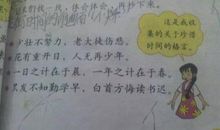 找一找，体会体会，再抄下来。
少壮不努力，老大徒伤悲。
花有重开日，人无再少年。
一日之计在于晨，一年之计在于春。
黑发不知勤学早，白首方悔读书迟。
这是我收
集的关于珍惜
时间的格言。